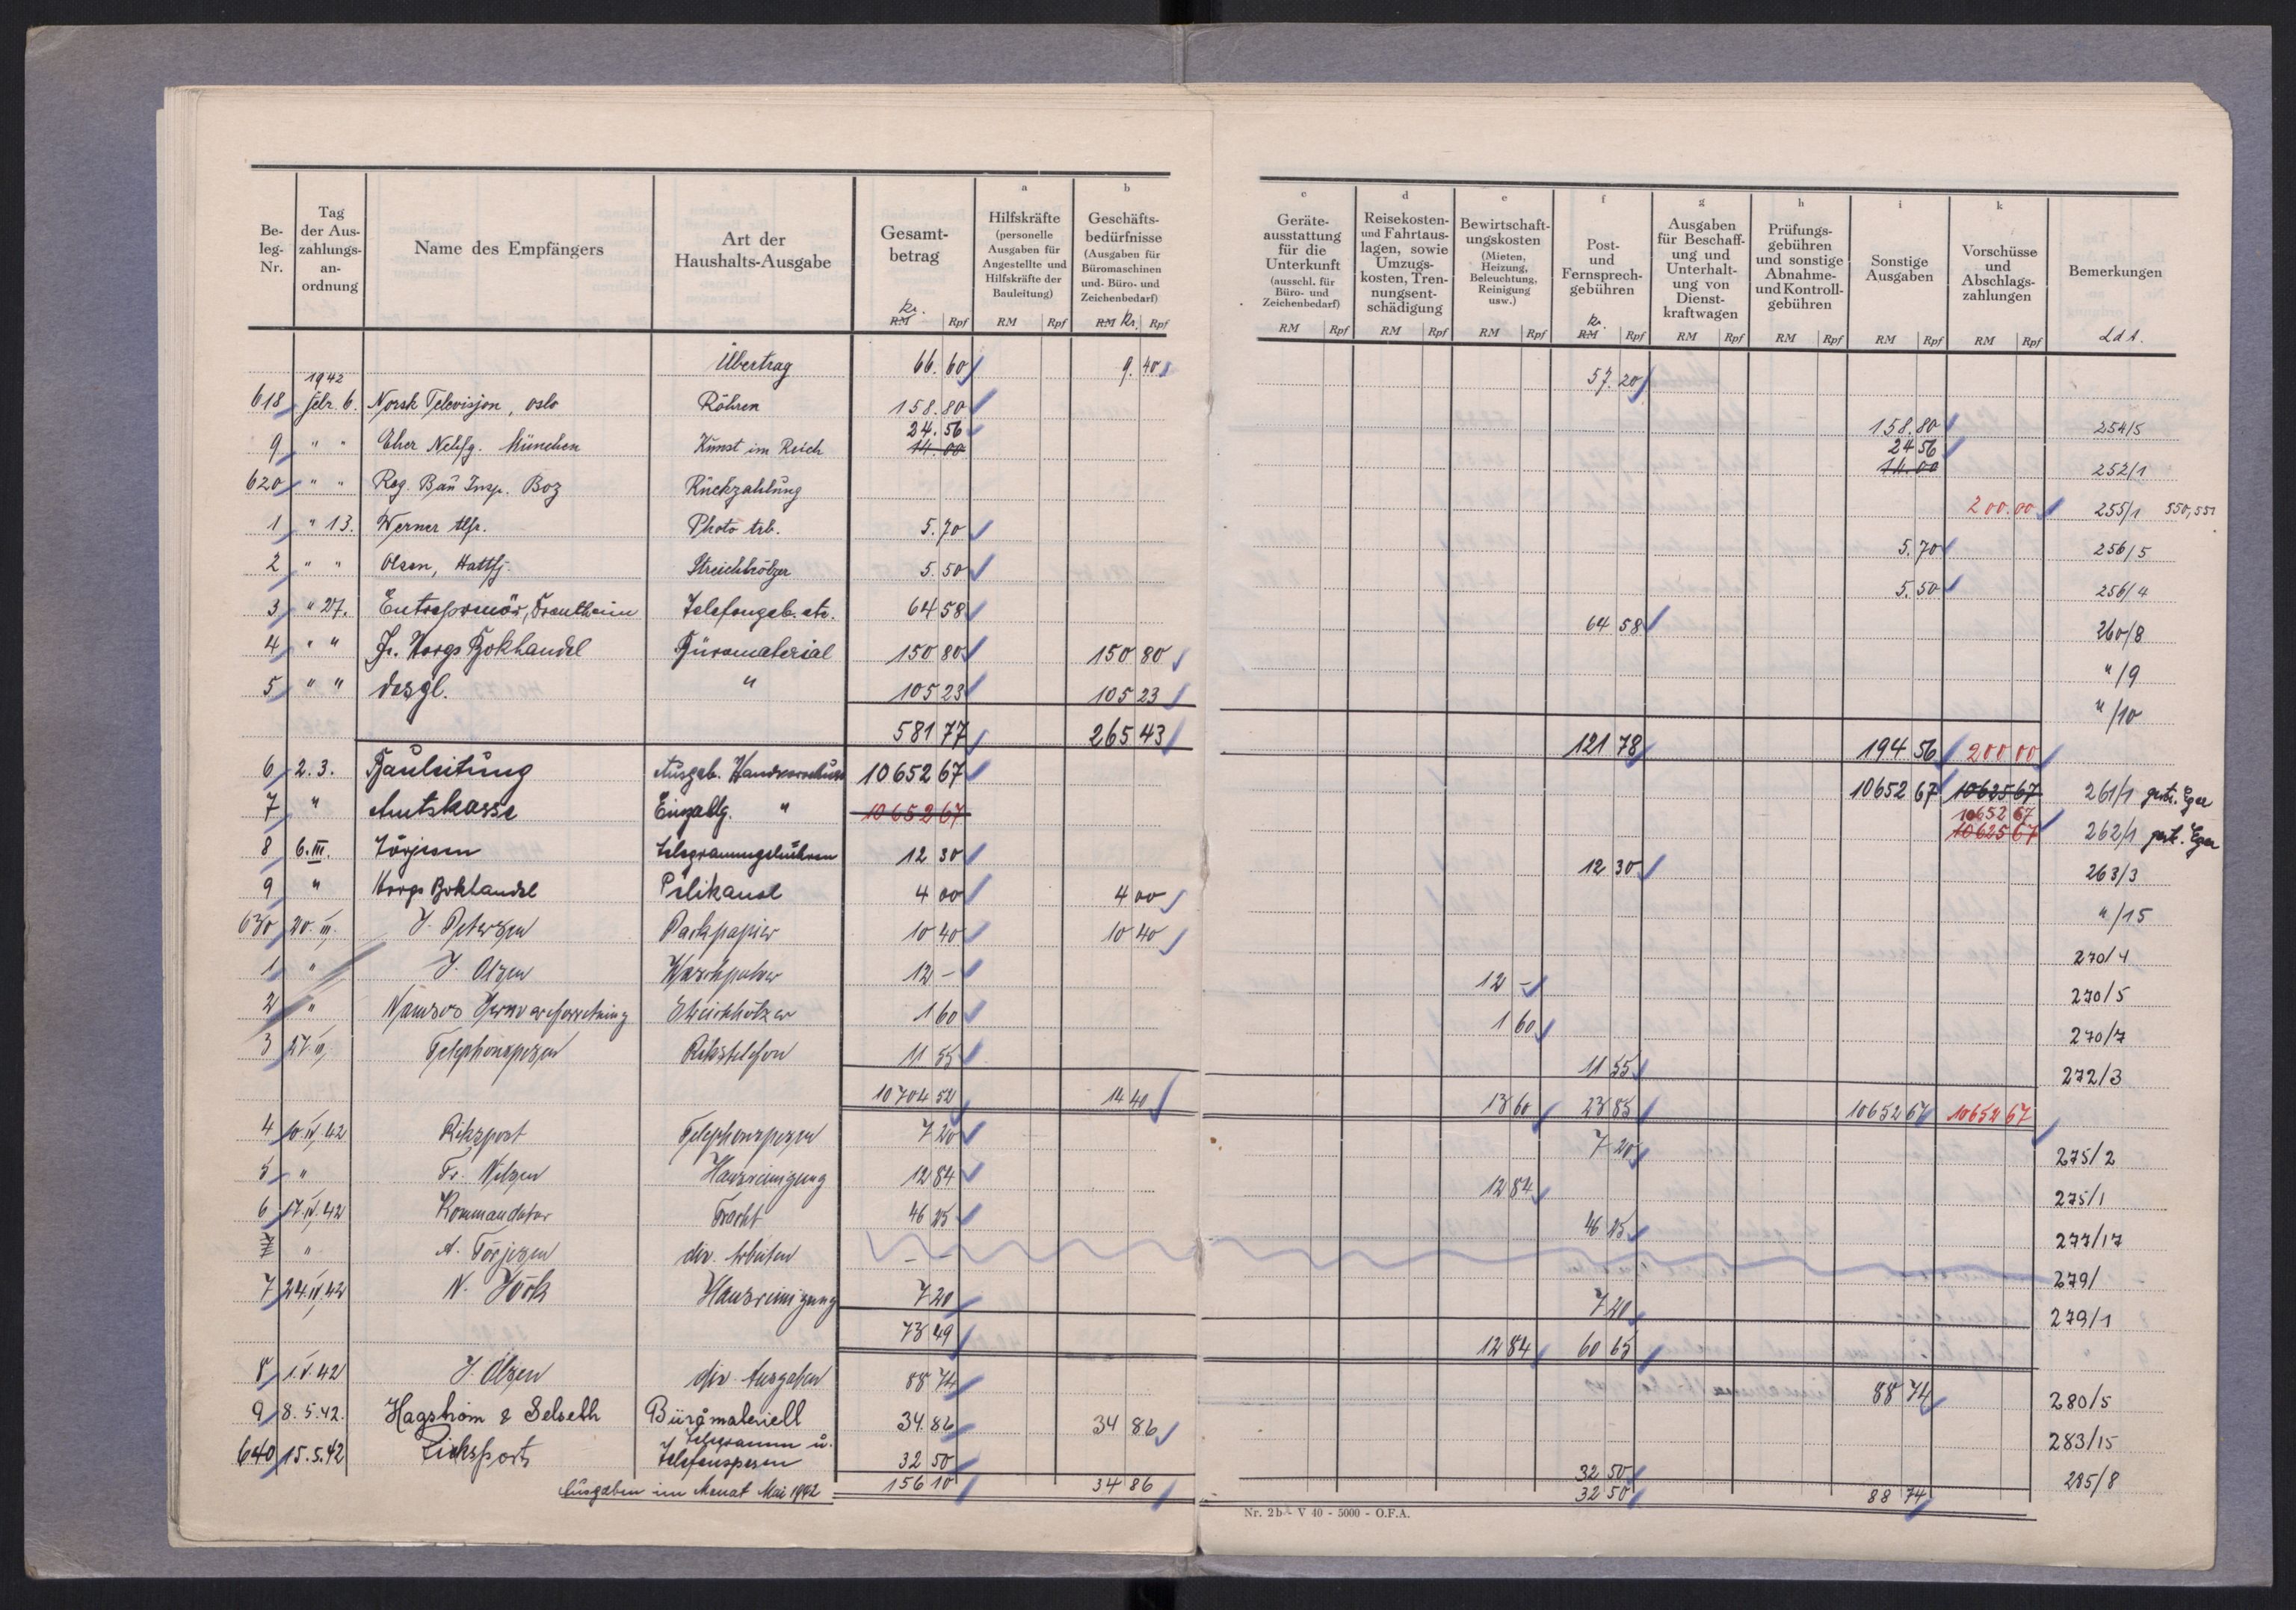 Be-leg-Nr. | Tag der Aus-zahlungs-an-ordnung | Name des Empfängers | Art der Haushalts-Ausgabe | Gesamt-betrag Kr. RM Rpf | a Hilfskräfte (personelle Ausgaben für Angestellte und Hilfskräfte der Bauleitung) RM Rpf | b Geschäfts-bedürfnisse (Ausgaben für Büromaschinen und. Büro- und Zeichenbedarf) RM Kr. Rpf | c Geräte-ausstattung für die Unterkunft (ausschl. für Büro- und Zeichenbedarf) RM Rpf | d Reisekosten- und Fahrtaus-lagen, sowie Umzugs-kosten, Tren-nungsent-schädigung RM Rpf | e Bewirtschaft-ungskosten (Mieten, Heizung, Beleuchtung, Reinigung usw.) RM Rpf | f Post- und Fernsprech-gebühren Kr. RM Rpf | g Ausgaben für Beschaff-ung und Unterhalt-ung von Dienst-kraftwagen RM Rpf | h Prüfungs-gebühren und sonstige Abnahme- und Kontroll-gebühren RM Rpf | i Sonstige Ausgaben RM Rpf | k Vorschüsse und Abschlags-zahlungen RM Rpf | Bemerkungen
Übertrag 66.60 9.40 57.20
1942
618 Febr. 6. Norsk Televisjon, Oslo Röhren 158.80 158.80 254/5
9 " " Eher Nchfg. München Kunst im Reich 24.56 14.00 24 56 14.00 252/1
620 " " Reg. Bau Insp. Boz Rückzahlung 200.00 255/1 550, 551
1 " 13. Werner Photo 5.70 5.70 256/5
2 " " Olsen, Hattfj. Streichhölzer 5.50 5.50 256/4
3 " 27. Entreprenör, Trontheim Telefongeb. etc. 64 58 64 58 260/8
4 " " Fr. Horgs Bokhandel Büromaterial 150 80 150 80 "/9
5 " " desgl. " 105 23 105 23 "/10
581 77 265 43 121 78 194 56 200 00
6 2.3. Bauleitung Ausgab. Handvorschuss 10652 67 10652 67 10625 67 261/1
7 " Amtskasse Einzahlg. " 10652 67 10652 67 10625 67 262/1
8 6.III. Törjesen Telegrammgebühren 12 30 12 30 263/3
9 " Horgs Bokhandel Pelikanol 4 00 4 00 "/15
630 20.III. J. Petersen Packpapier 10 40 10 40 270/4
1 " J. Olsen Waschpulver 12 - 12 - 270/5
2 " Namsos Streichhölzer 1 60 1 60 270/7
3 27.III. Telephonspesen Rikstelefon 11 55 11 55 272/3
10704 52 14 40 13 60 23 85 10652 67 10652 67
4 10.IV.42 Rikspost Telephonspesen 7 20 7 20 275/2
5 " Fr. Nilsen Hausreinigung 12 84 12 84 275/1
6 17.IV.42 Kommandatur Fracht 46 25 46 25 277/17
7 " A. Törjesen div. Arbeiten - - 279/
7 24.IV.42 N. Hausreinigung 7 20 7 20 279/1
73 49 12 84 60 65
8 1.V.42 J. Olsen div. Ausgaben 88 74 88 74 280/5
9 8.5.42. Hagstrom & Selseth Büromateriell 34 86 34 86 283/15
640 15.5.42 Riksports Telegramm u. Telefonspesen 32 50 32 50 285/8
Ausgaben im Monat Mai 1942 156 10 34 86 32 50 88 74
Nr. 2b - V 40 - 5000 - O.F.A.